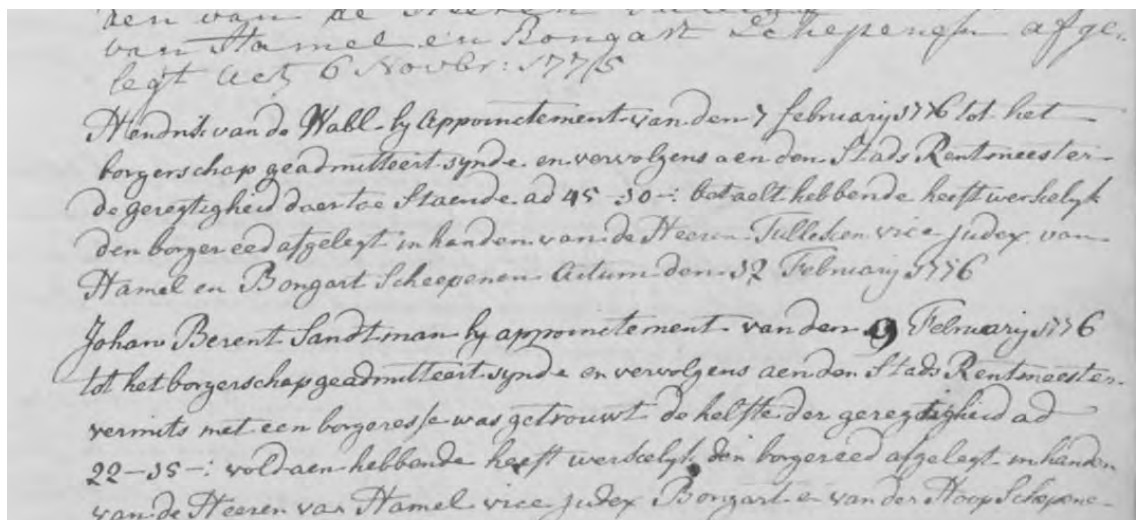 den van de Heeren
van Hamel en Bongart Schepenen afge-
legt Act 6 Novbr: 1775
Hendrik van de Wabl by Appoinctement van den 7 february 1776 tot het
borgerschap geadmitteert synde en vervolgens aen den Stads Rentmeester
de geregtigheid daer toe Staende ad 45-10-: betaelt hebbende heeft werkelyk
den borger eed afgelegt in handen van de Heeren Tulleken vice judex van
Hamel en Bongart Scheepenen Actum den 12 February 1776
Johan Berent Sandtman by appoinctement van den 9 February 1776
tot het borgerschap geadmitteert synde en vervolgens aen den Stads Rentmeester
vermits met een borgeresse was getrouwt de helfte der geregtigheid ad
22-15-: voldaen hebbende heeft werkelyk den borger eed afgelegt in handen
van de Heeren van Hamel vice judex Bongart en van der Hoop Schepene